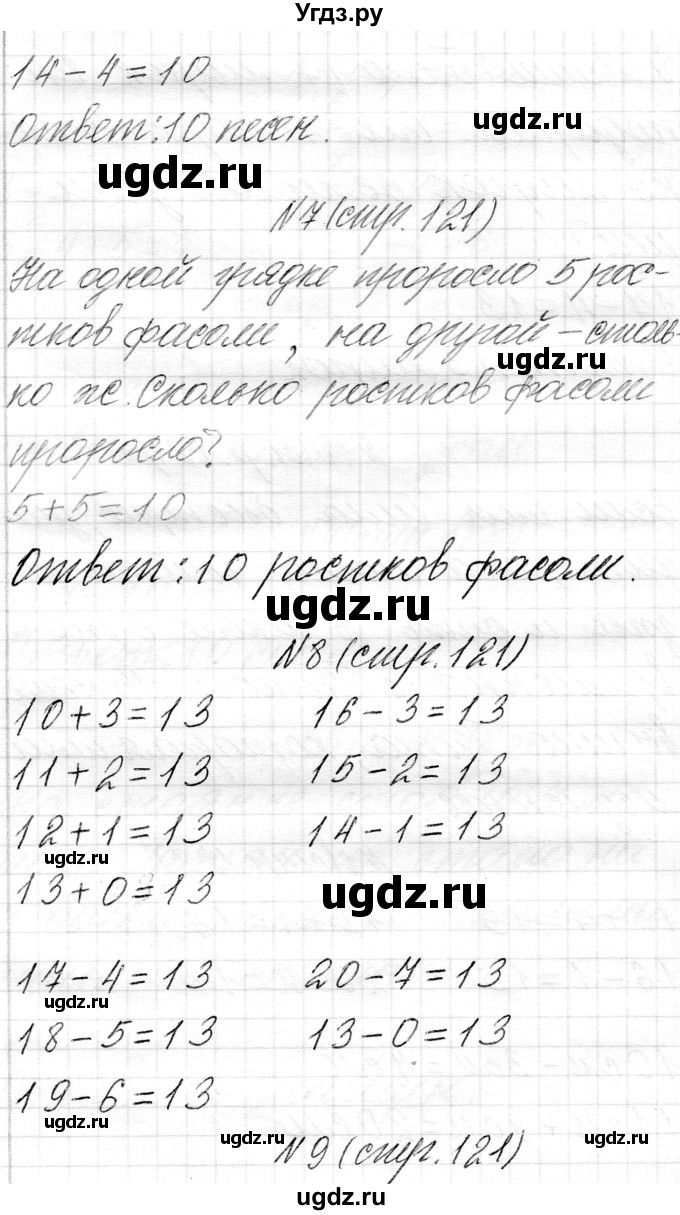 Угдз.ру
14 - 4 = 10
Ответ: 10 песен.
ugdz.ru
ugdz.ru
N7 (стр. 121)
На одной грядке проросло 5 рос-
тков фасоли, на другой - столь-
ugdz.ru
ко же. Сколько ростков фасоли
проросло?
5 + 5 = 10
Ответ: 10 ростков фасоли.
ugdz.ru
N8 (стр. 121)
10 + 3 = 13 16 - 3 = 13
11 + 2 = 13 15 - 2 = 13
12 + 1 = 13 14 - 1 = 13
ugdz.ru
13 + 0 = 13
ugdz.ru
17 - 4 = 13 20 - 7 = 13
ugdz.ru
18 - 5 = 13 13 - 0 = 13
19 - 6 = 13
ugdz.ru
N9 (стр. 121)
ugdz.ru
ugdz.ru
ugdz.ru